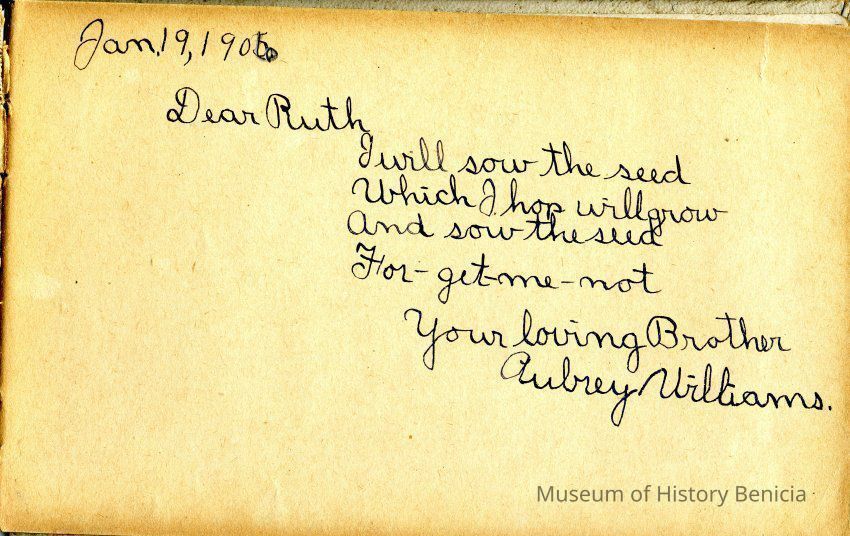 Jan. 19, 1906
Dear Ruth
I will sow the seed
Which I hop will grow
And sow the seed
For-get-me-not
Your loving Brother
Aubrey Williams.
Museum of History Benicia